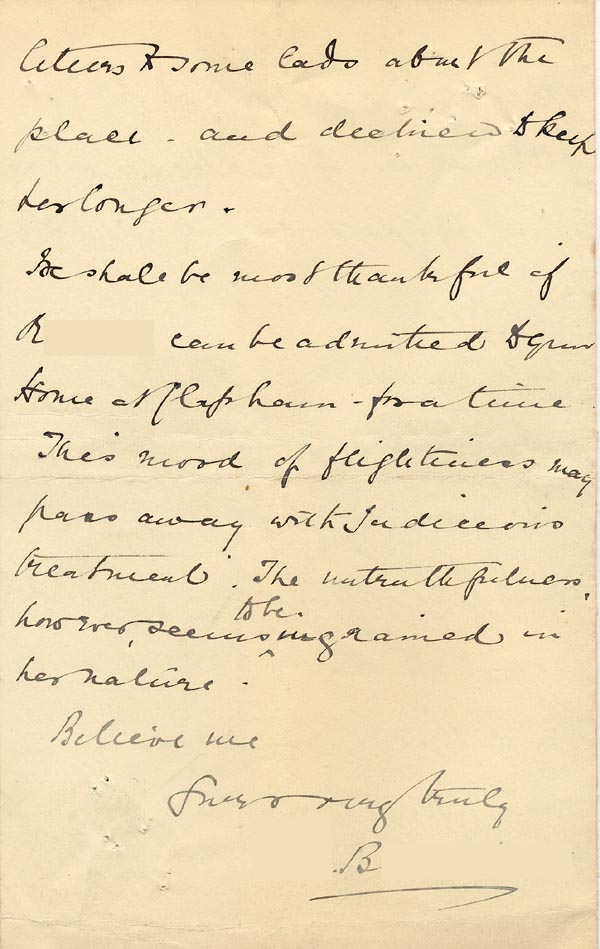 letters to some lads about the
place - and declined to keep
her longer.
We shall be most thankful if
R can be admitted to your
Home at Clapham - for a time
This mood of flightiness may
pass away with Judicious
treatment. The untruthfulness,
to be
however, seems ^ ingrained in
her nature.
Believe me
Yours very truly
B